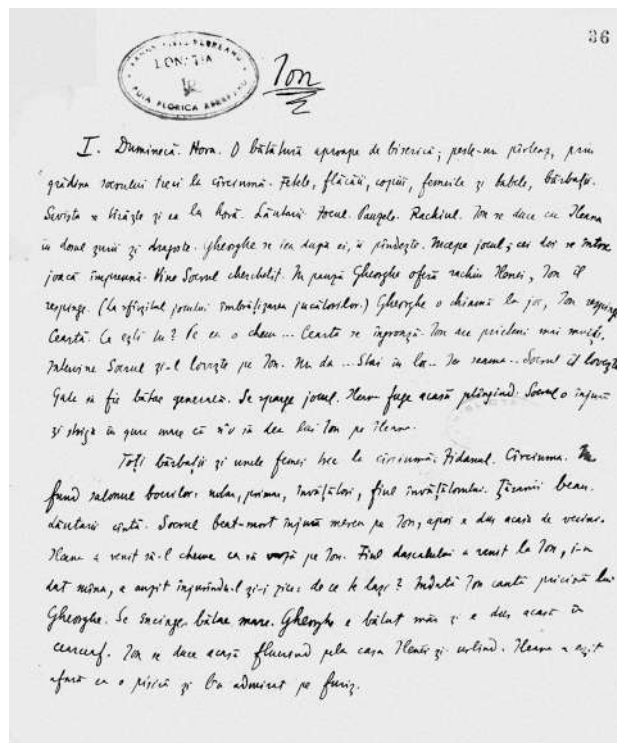 36
Ion
I. Duminecă. Hora. O bătătură aproape de biserică; peste-un pârleaz, prin
grădina socrului treci la cîrciumă. Fetele, flăcăii, copiii, femeile și babele, bărbații.
Savista se tîrăște și ea la horă. Lăutarii. Jocul. Pauzele. Rachiul. Ion se duce cu Ileana
în dosul șurii și dragoste. Gheorghe se iea după ei, îi pîndește. Începe jocul; cei doi se întorc
joacă împreună. Vine Socrul cherchelit. În pauză Gheorghe oferă rachiu Ilenei, Ion îl
respinge. (La sfîrșitul jocului îmbrățișarea jucătorilor.) Gheorghe o chiamă la joc, Ion respinge
Ceartă. Ce ești tu? Pe ea o chem... Cearta se îngroașă. Ion are prieteni mai mulți,
Intervine Socrul și-l lovește pe Ion. Nu da... Stai în loc... Ia seama... Socrul îl lovește
Gata să fie bătae generală. Se sparge jocul. Ileana fuge acasă plîngînd. Socrul o înjură
și strigă în gura mare că n'o să dea lui Ion pe Ileana.
Toți bărbații și unele femei trec la cîrciumă: Jidanul. Cîrciuma. În
fund salonul bocilor: notar, primar, învățători, fiul învățătorului. Țăranii beau.
Lăutarii cîntă. Socrul beat-mort înjură mereu pe Ion, apoi e dus acasă de vecini.
Ileana a venit să-l cheme ca să vază pe Ion. Fiul dascălului a venit la Ion, i-a
dat mîna, a auzit înjurîndu-l și-i zice: de ce te lași? Îndată Ion caută pricină lui
Gheorghe. Se încinge bătae mare. Gheorghe e bătut măr și e dus acasă în
cearceaf. Ion se duce acasă fluerînd pela casa Ilenei și urlînd. Ileana a eșit
afară ca o pisică și l-a admirat pe furiș.